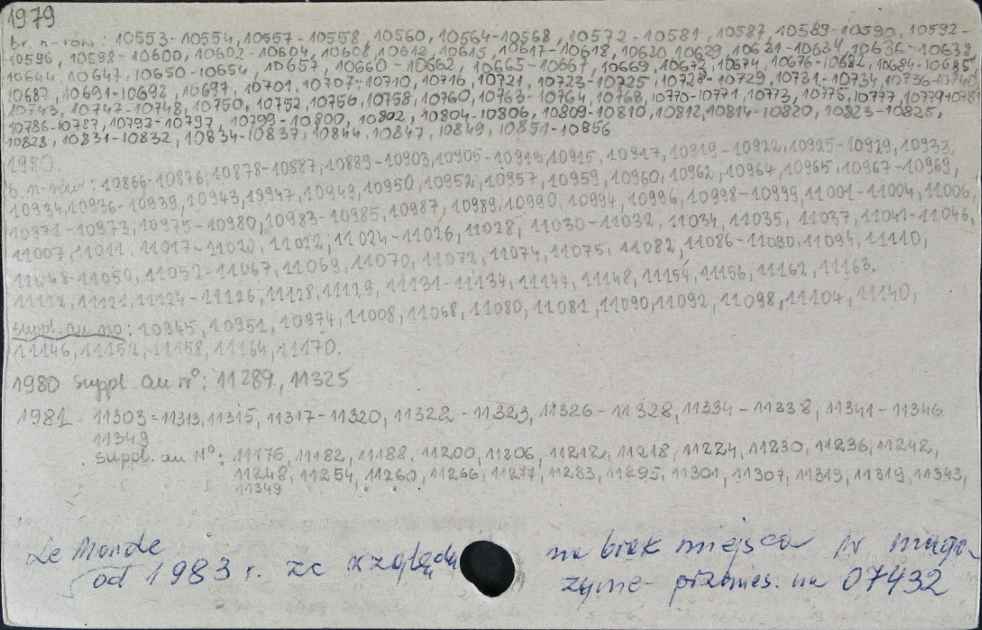 1979
br. n-rów: 10553-10554, 10557-10558, 10560, 10564-10568, 10572-10581, 10587, 10589-10590, 10592-
10596, 10598-10600, 10602-10604, 10608, 10612, 10615, 10617-10618, 10620, 10629, 10631-10634, 10636-10638
10644, 10647, 10650-10654, 10657, 10660-10662, 10665-10667, 10669, 10672, 10674, 10676-10682, 10684-10685
10687, 10691-10692, 10697, 10701, 10707-10710, 10716, 10721, 10723-10725, 10728-10729, 10731-10734, 10736-10740
10743, 10747-10748, 10750, 10752, 10756, 10758, 10760, 10763-10764, 10768, 10770-10771, 10773, 10775, 10777, 10779-10781
10786-10787, 10793-10797, 10799-10800, 10802, 10804-10806, 10809-10810, 10812, 10814-10820, 10823-10825,
10828, 10831-10832, 10834-10837, 10844, 10847, 10849, 10851-10856
1980
b. n-rów: 10866-10876, 10878-10887, 10889-10903, 10905-10913, 10915, 10917, 10919-10922, 10925-10929, 10933,
10934, 10936-10939, 10943, 10947, 10949, 10950, 10952, 10957, 10959, 10960, 10962, 10964, 10965, 10967-10969,
10971-10973, 10975-10980, 10983-10985, 10987, 10989, 10990, 10994, 10996, 10998-10999, 11001-11004, 11006,
11007, 11011, 11017-11020, 11022, 11024-11026, 11028, 11030-11032, 11034, 11035, 11037, 11041-11046,
11048-11050, 11052-11067, 11069, 11070, 11072, 11074, 11075, 11082, 11086-11090, 11094, 11110,
11112, 11121, 11124-11126, 11128, 11129, 11131-11134, 11147, 11148, 11154, 11156, 11162, 11163.
suppl. au no: 10945, 10951, 10974, 11008, 11068, 11080, 11081, 11090, 11092, 11098, 11104, 11140,
11146, 11152, 11158, 11164, 11170.
1980 suppl. au n°: 11289, 11325
1981 - 11303-11313, 11315, 11317-11320, 11322-11323, 11326-11328, 11334-11338, 11341-11346
11349
suppl. au N°: 11176, 11182, 11188, 11200, 11206, 11212, 11218, 11224, 11230, 11236, 11242,
11248, 11254, 11260, 11266, 11277, 11283, 11295, 11301, 11307, 11313, 11319, 11343,
11349
Le Monde na brak miejsca w maga-
od 1983 r. ze względu zynie przenies. na 07432